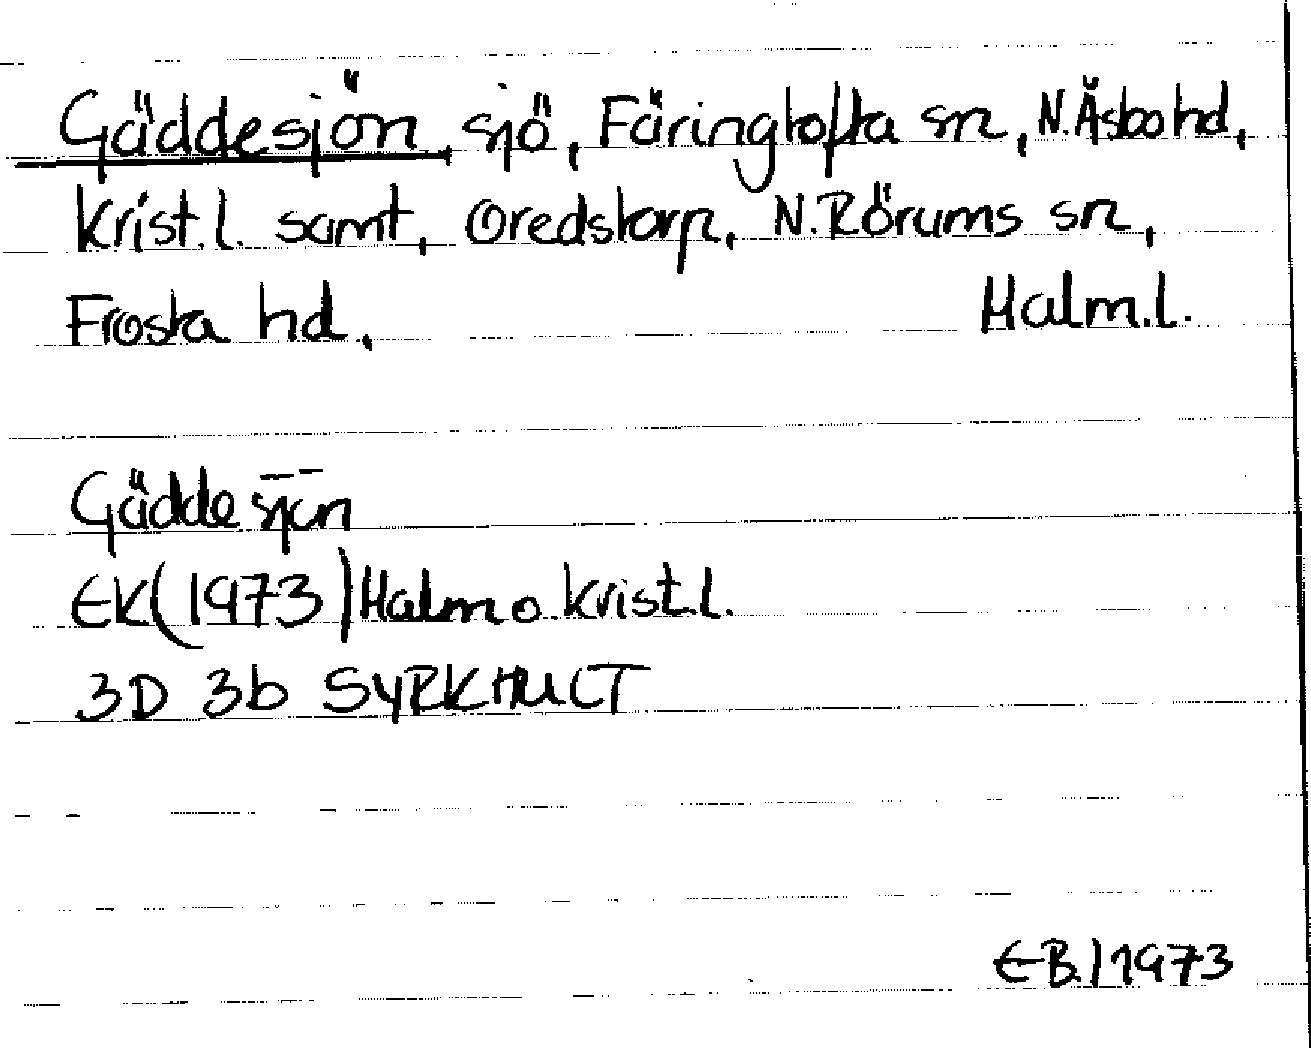 Gäddesjön, sjö, Färingtofta sn, N.Åsbo hd,
Krist.l. samt, Oredstorp, N.Rörums sn,
Frosta hd, Malm.l.
Gäddesjön
EK(1973)Malm o. Krist.l.
3D 3b SYRKHULT
EB.1973